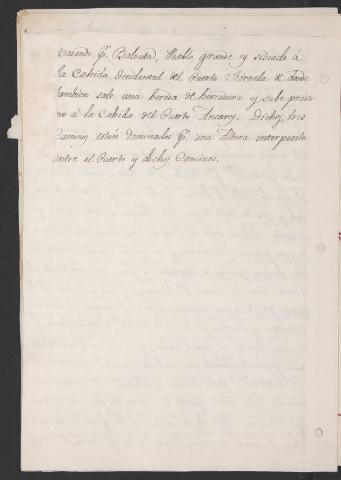 pasando pr. Balouta, Pueblo grande y situado á
la Cahida Occidental del Puerto Fornela de donde
tambien sale una bereda de herradura y sube proxi-
mo á la Cahida del Puerto Ancares. Dichos tres
Caminos están dominados pr. una Altura interpuesta
entre el Puerto y dichos Caminos.